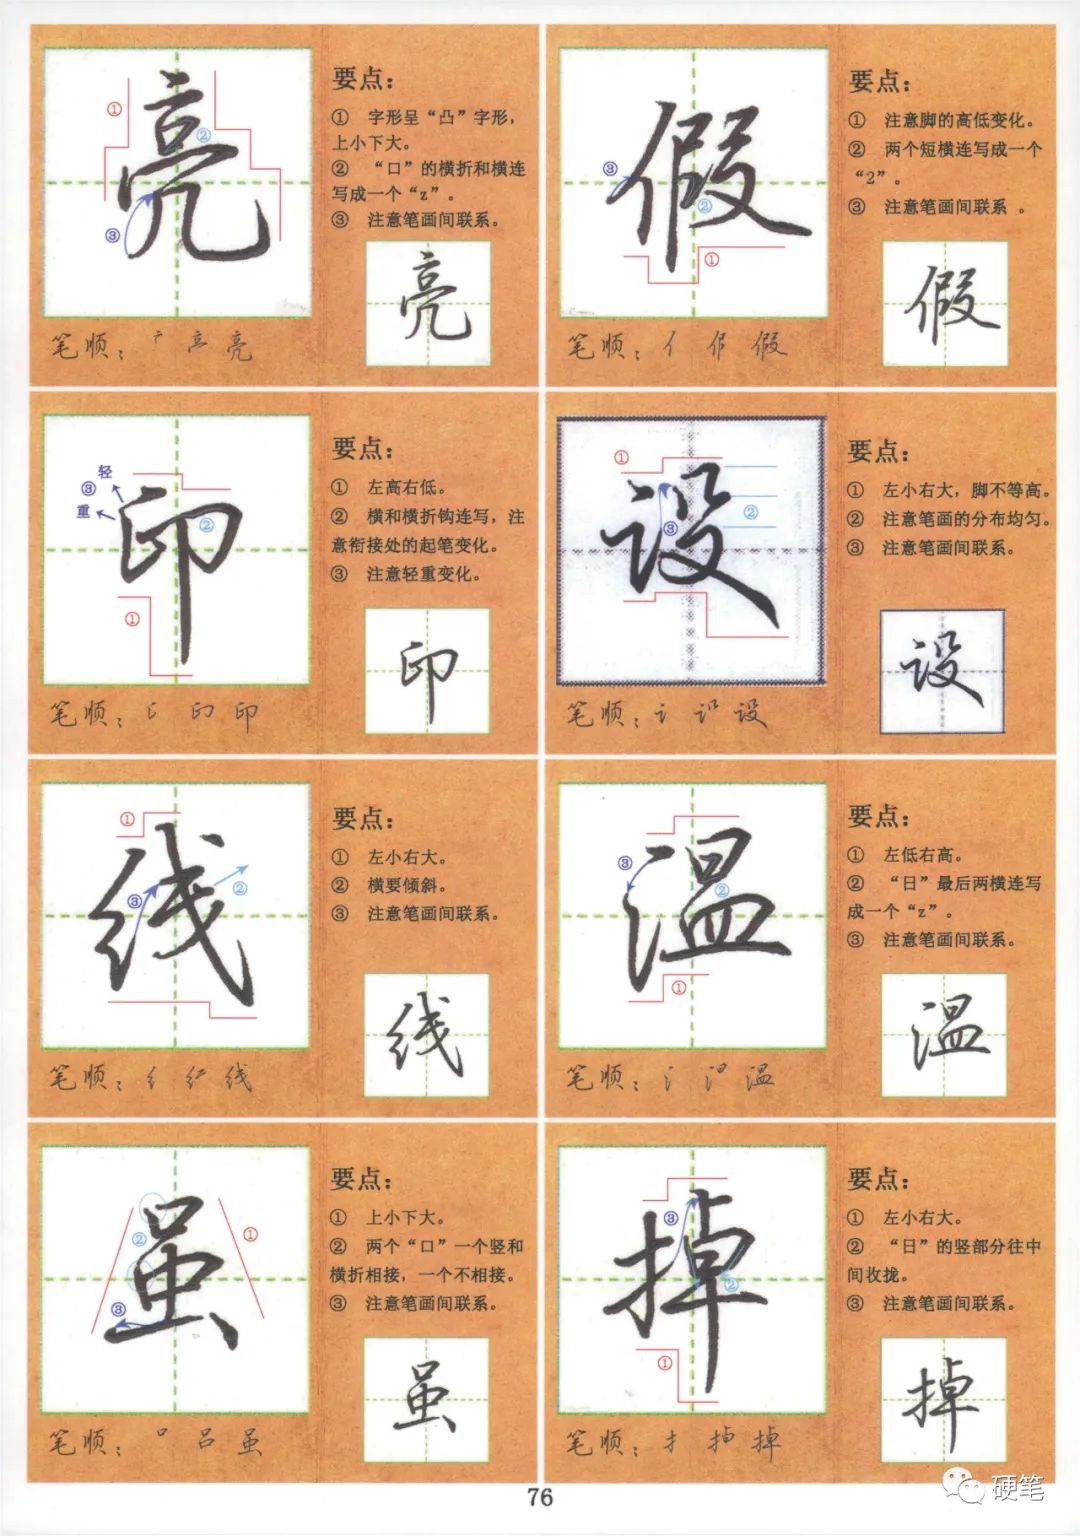 亮
①
②
③
要点：
① 字形呈“凸”字形，
上小下大。
② “口”的横折和横连
写成一个“z”。
③ 注意笔画间联系。
亮
笔顺：亠 亮
假
③
②
①
要点：
① 注意脚的高低变化。
② 两个短横连写成一个
“2”。
③ 注意笔画间联系 。
假
笔顺：亻 假
印
轻
③
重
②
①
要点：
① 左高右低。
② 横和横折钩连写，注
意衔接处的起笔变化。
③ 注意轻重变化。
印
笔顺：印
设
①
②
③
要点：
① 左小右大，脚不等高。
② 注意笔画的分布均匀。
③ 注意笔画间联系。
设
笔顺：讠 设
线
①
③
②
要点：
① 左小右大。
② 横要倾斜。
③ 注意笔画间联系。
线
笔顺：纟 线
温
③
②
①
要点：
① 左低右高。
② “日”最后两横连写
成一个“z”。
③ 注意笔画间联系。
温
笔顺：氵 温
虽
①
②
③
要点：
① 上小下大。
② 两个“口”一个竖和
横折相接，一个不相接。
③ 注意笔画间联系。
虽
笔顺：口 吕 虽
掉
③
②
①
要点：
① 左小右大。
② “日”的竖部分往中
间收拢。
③ 注意笔画间联系。
掉
笔顺：扌 掉
76
硬笔